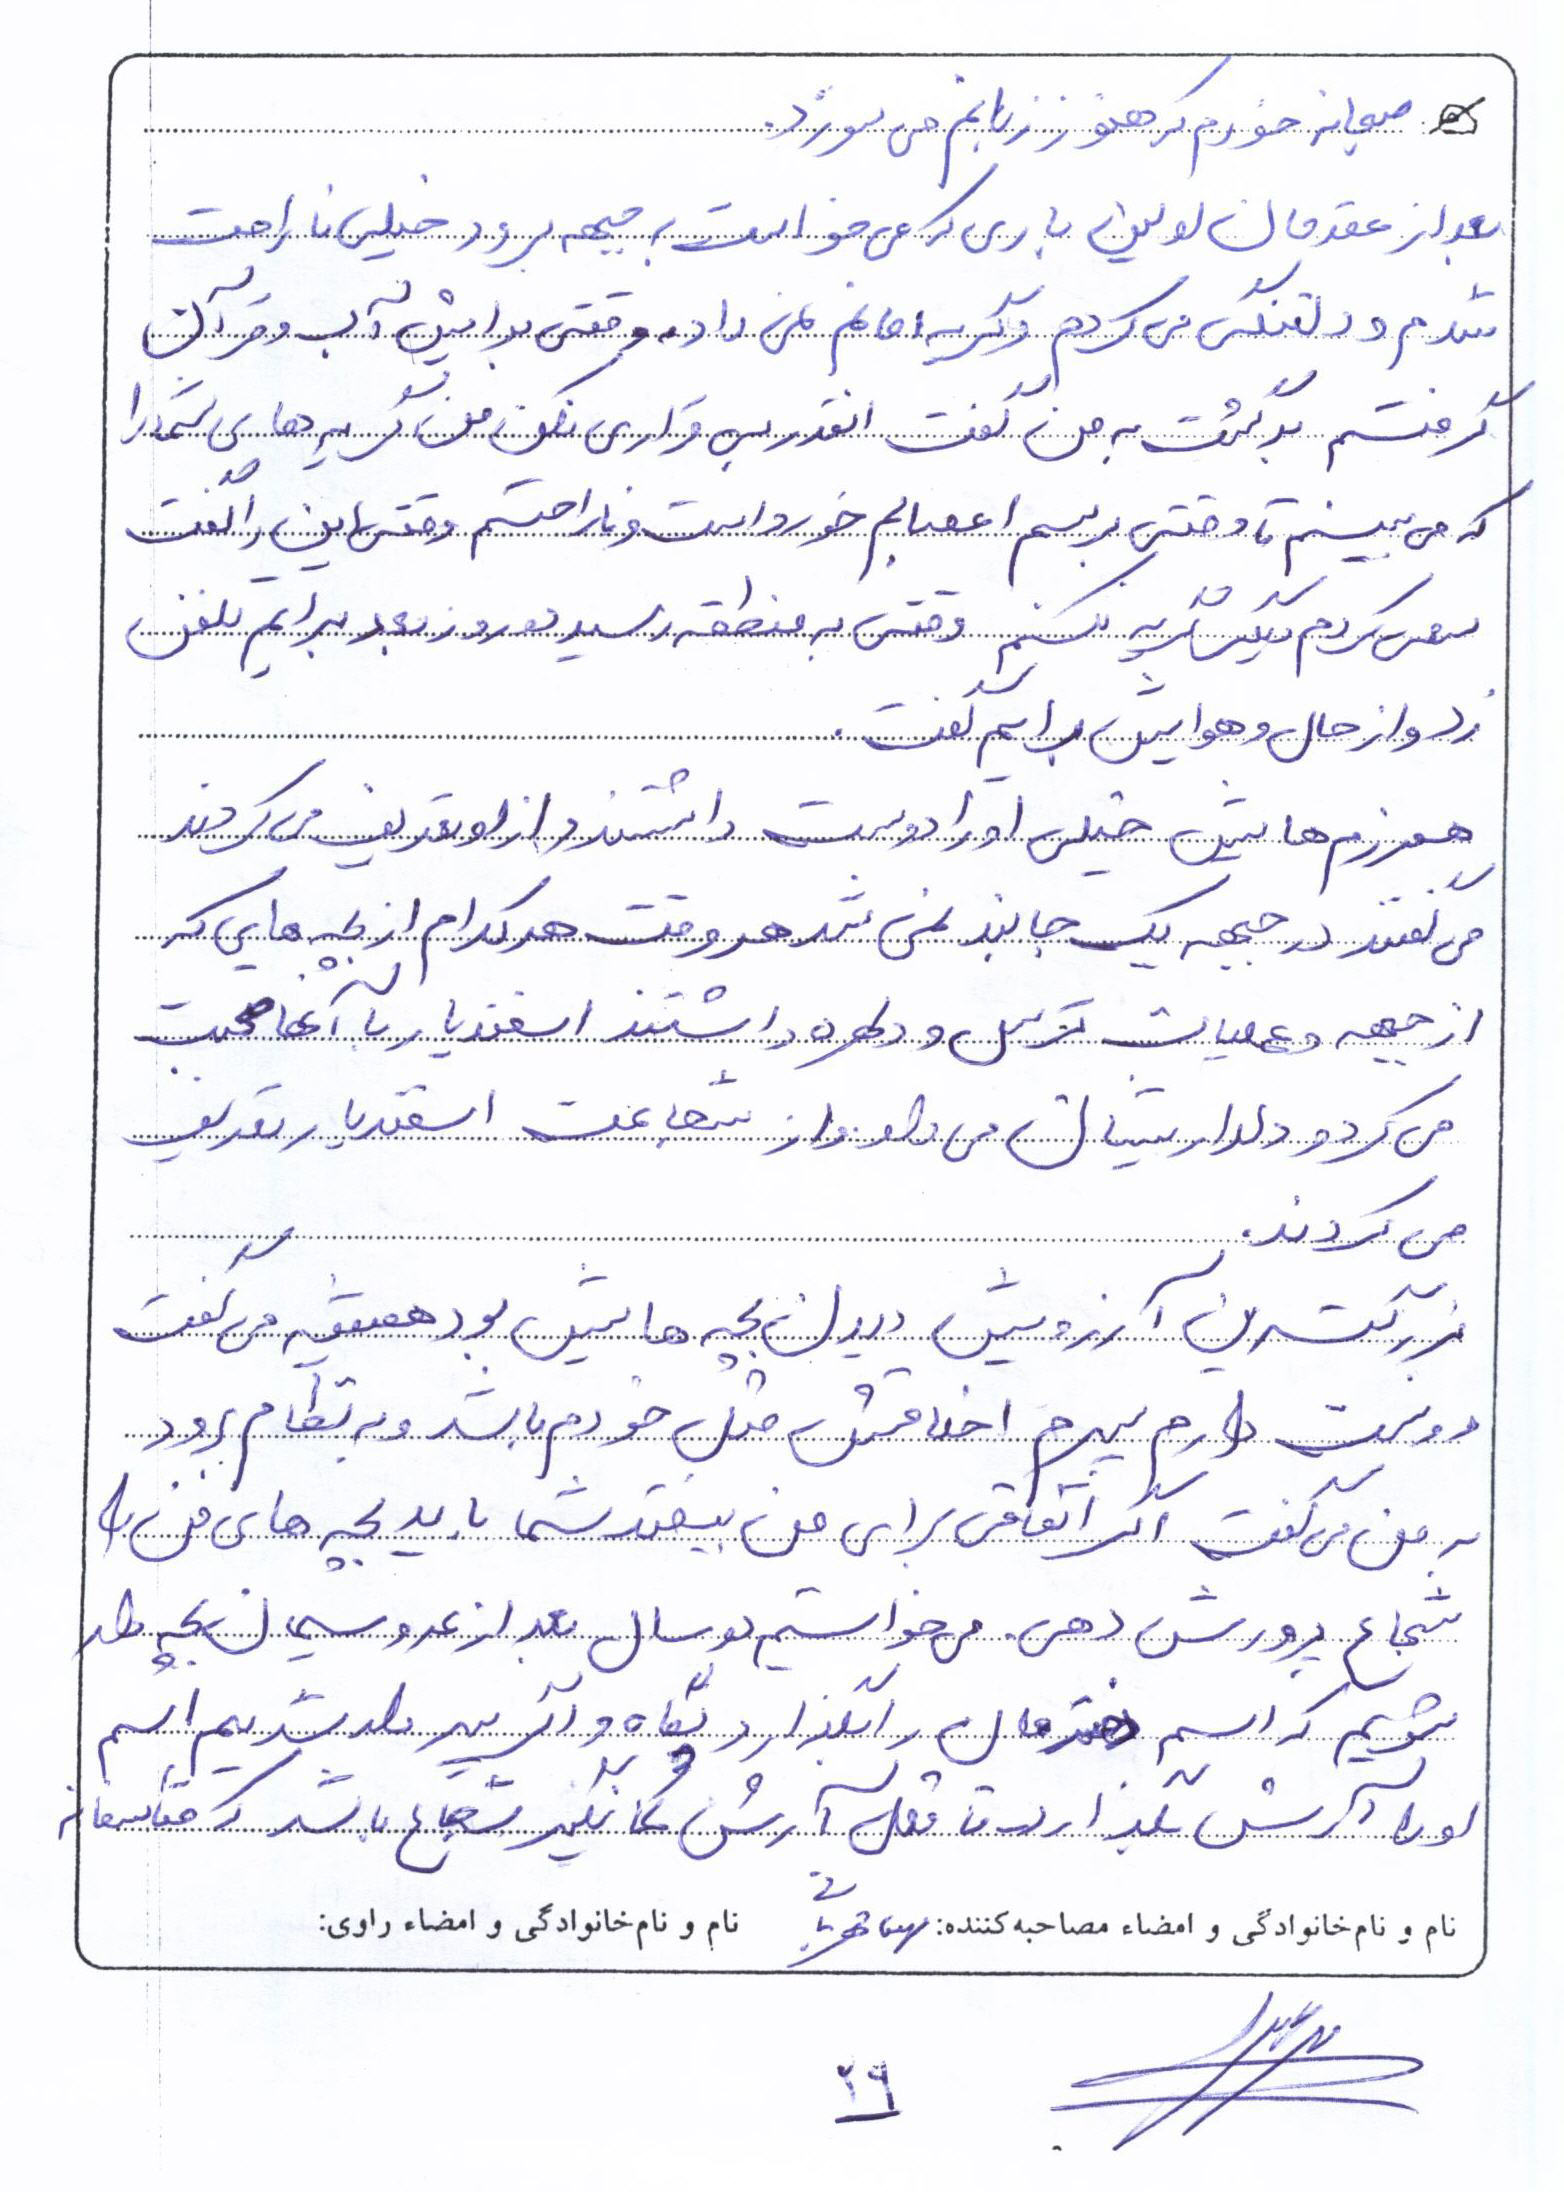 صبحانه خوردم که هنوز زبانم می سوزد.
بعد از عقدمان اولین باری که می خواست به جبهه برود خیلی ناراحت
شدم و دلتنگی می کردم و گریه امانم نمی داد. وقتی برایش آب و قرآن
گرفتم برگشت به من گفت انقدر بی قراری نکن من گریه های شما را
که می بینم تا وقتی برسم اعصابم خورد است و ناراحتم وقتی این را گفت
سعی کردم دیگر گریه نکنم وقتی به منطقه رسید دو روز بعد برایم تلفن
زد و از حال و هوایش برایم گفت.
همرزم هایش خیلی او را دوست داشتند و از او تعریف می کردند
می گفتند در جبهه یک جا بند نمی شد هر وقت هر کدام از بچه هایی که
از جبهه و عملیات ترس و دلهره داشتند اسفندیار با آنها صحبت
می کرد و دلداریشان می داد و از شجاعت اسفندیار تعریف
می کردند.
بزرگترین آرزویش دیدن بچه هایش بود همیشه می گفت
دوست دارم پسرم اخلاقش مثل خودم باشد و به نظام برود
به من می گفت اگر اتفاقی برای من بیفتد شما باید بچه های من را
شجاع پرورش دهی. می خواستیم دو سال بعد از عروسیمان بچه دار
شویم که اسم دخترمان را بگذارد نگاه و اگر پسر دار شدیم اسم
او را آرش بگذارد تا مثل آرش کمانگیر شجاع باشد که متاسفانه
نام و نام خانوادگی و امضاء مصاحبه کننده: نام و نام خانوادگی و امضاء راوی:
۲۹